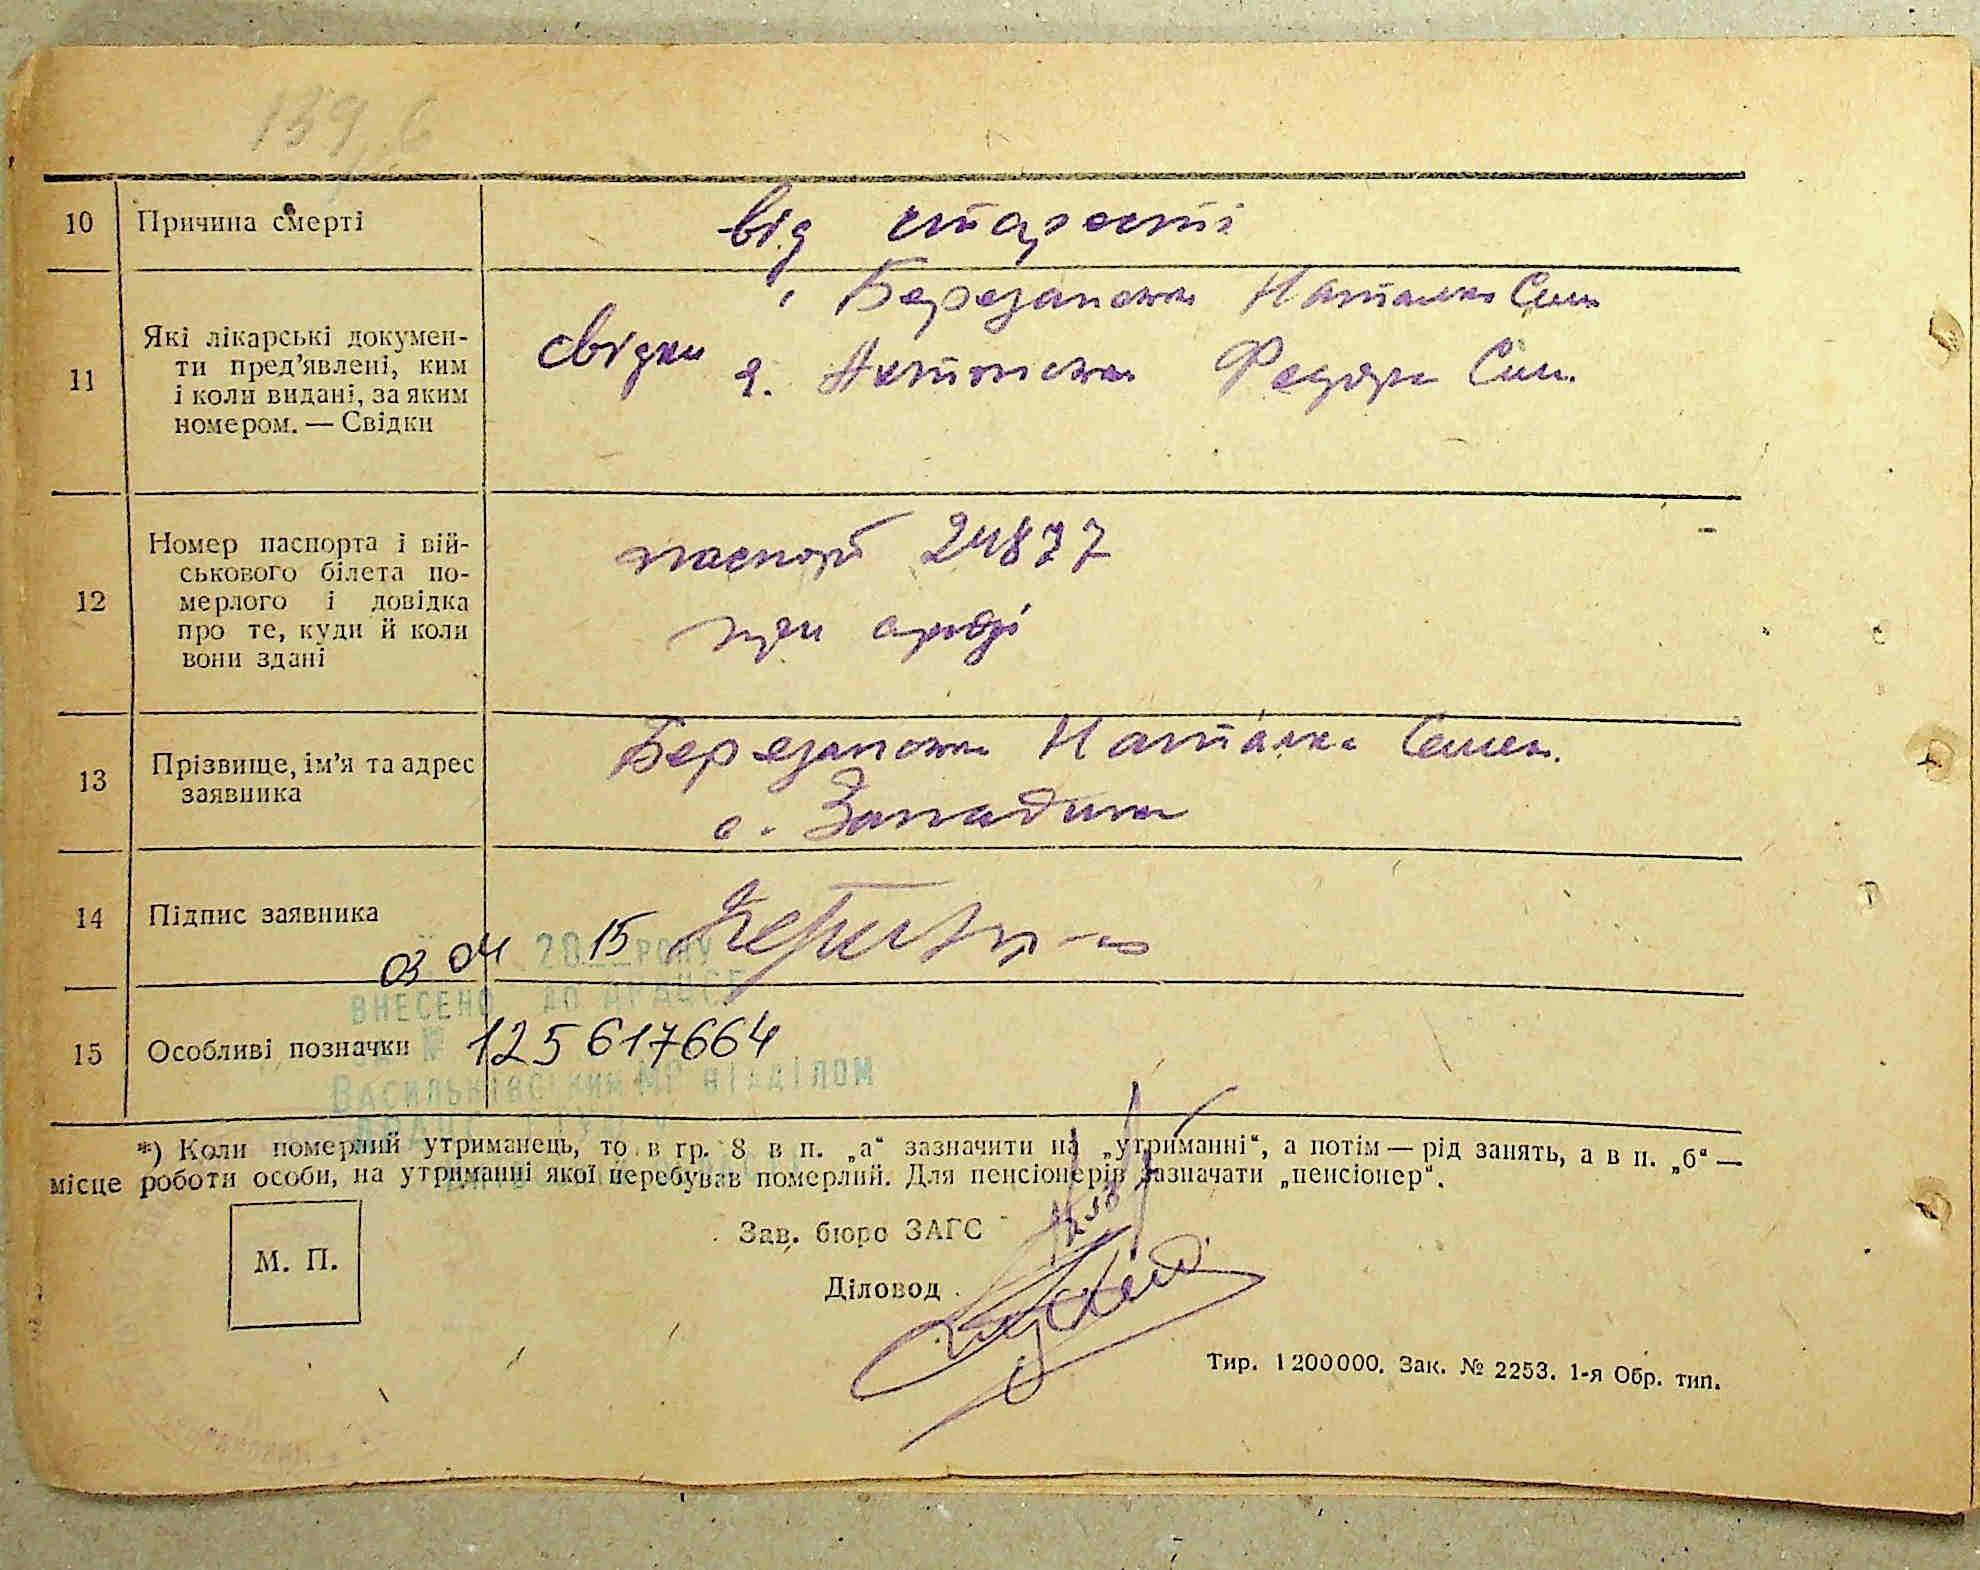 139
10 Причина смерті від старості
11 Які лікарські докумен-
ти пред'явлені, ким
і коли видані, за яким
номером. — Свідки
свідки
2.
12 Номер паспорта і вій-
ськового білета по-
мерлого і довідка
про те, куди й коли
вони здані
паспорт 24877
при
13 Прізвище, ім'я та адрес
заявника
с. Западинка
14 Підпис заявника
03 04 20 15 РОКУ
ВНЕСЕНО ДО ДРАЦСГ
15 Особливі позначки № 125617664
ВАСИЛЬКІВСЬКИМ МР ВІДДІЛОМ
*) Коли померлий утриманець, то в гр. 8 в п. „а“ зазначити на „утриманні“, а потім — рід занять, а в п. „б“ —
місце роботи особи, на утриманні якої перебував померлий. Для пенсіонерів зазначати „пенсіонер“.
М. П.
Зав. бюро ЗАГС
Діловод
Тир. 1 200 000. Зак. № 2253. 1-я Обр. тип.